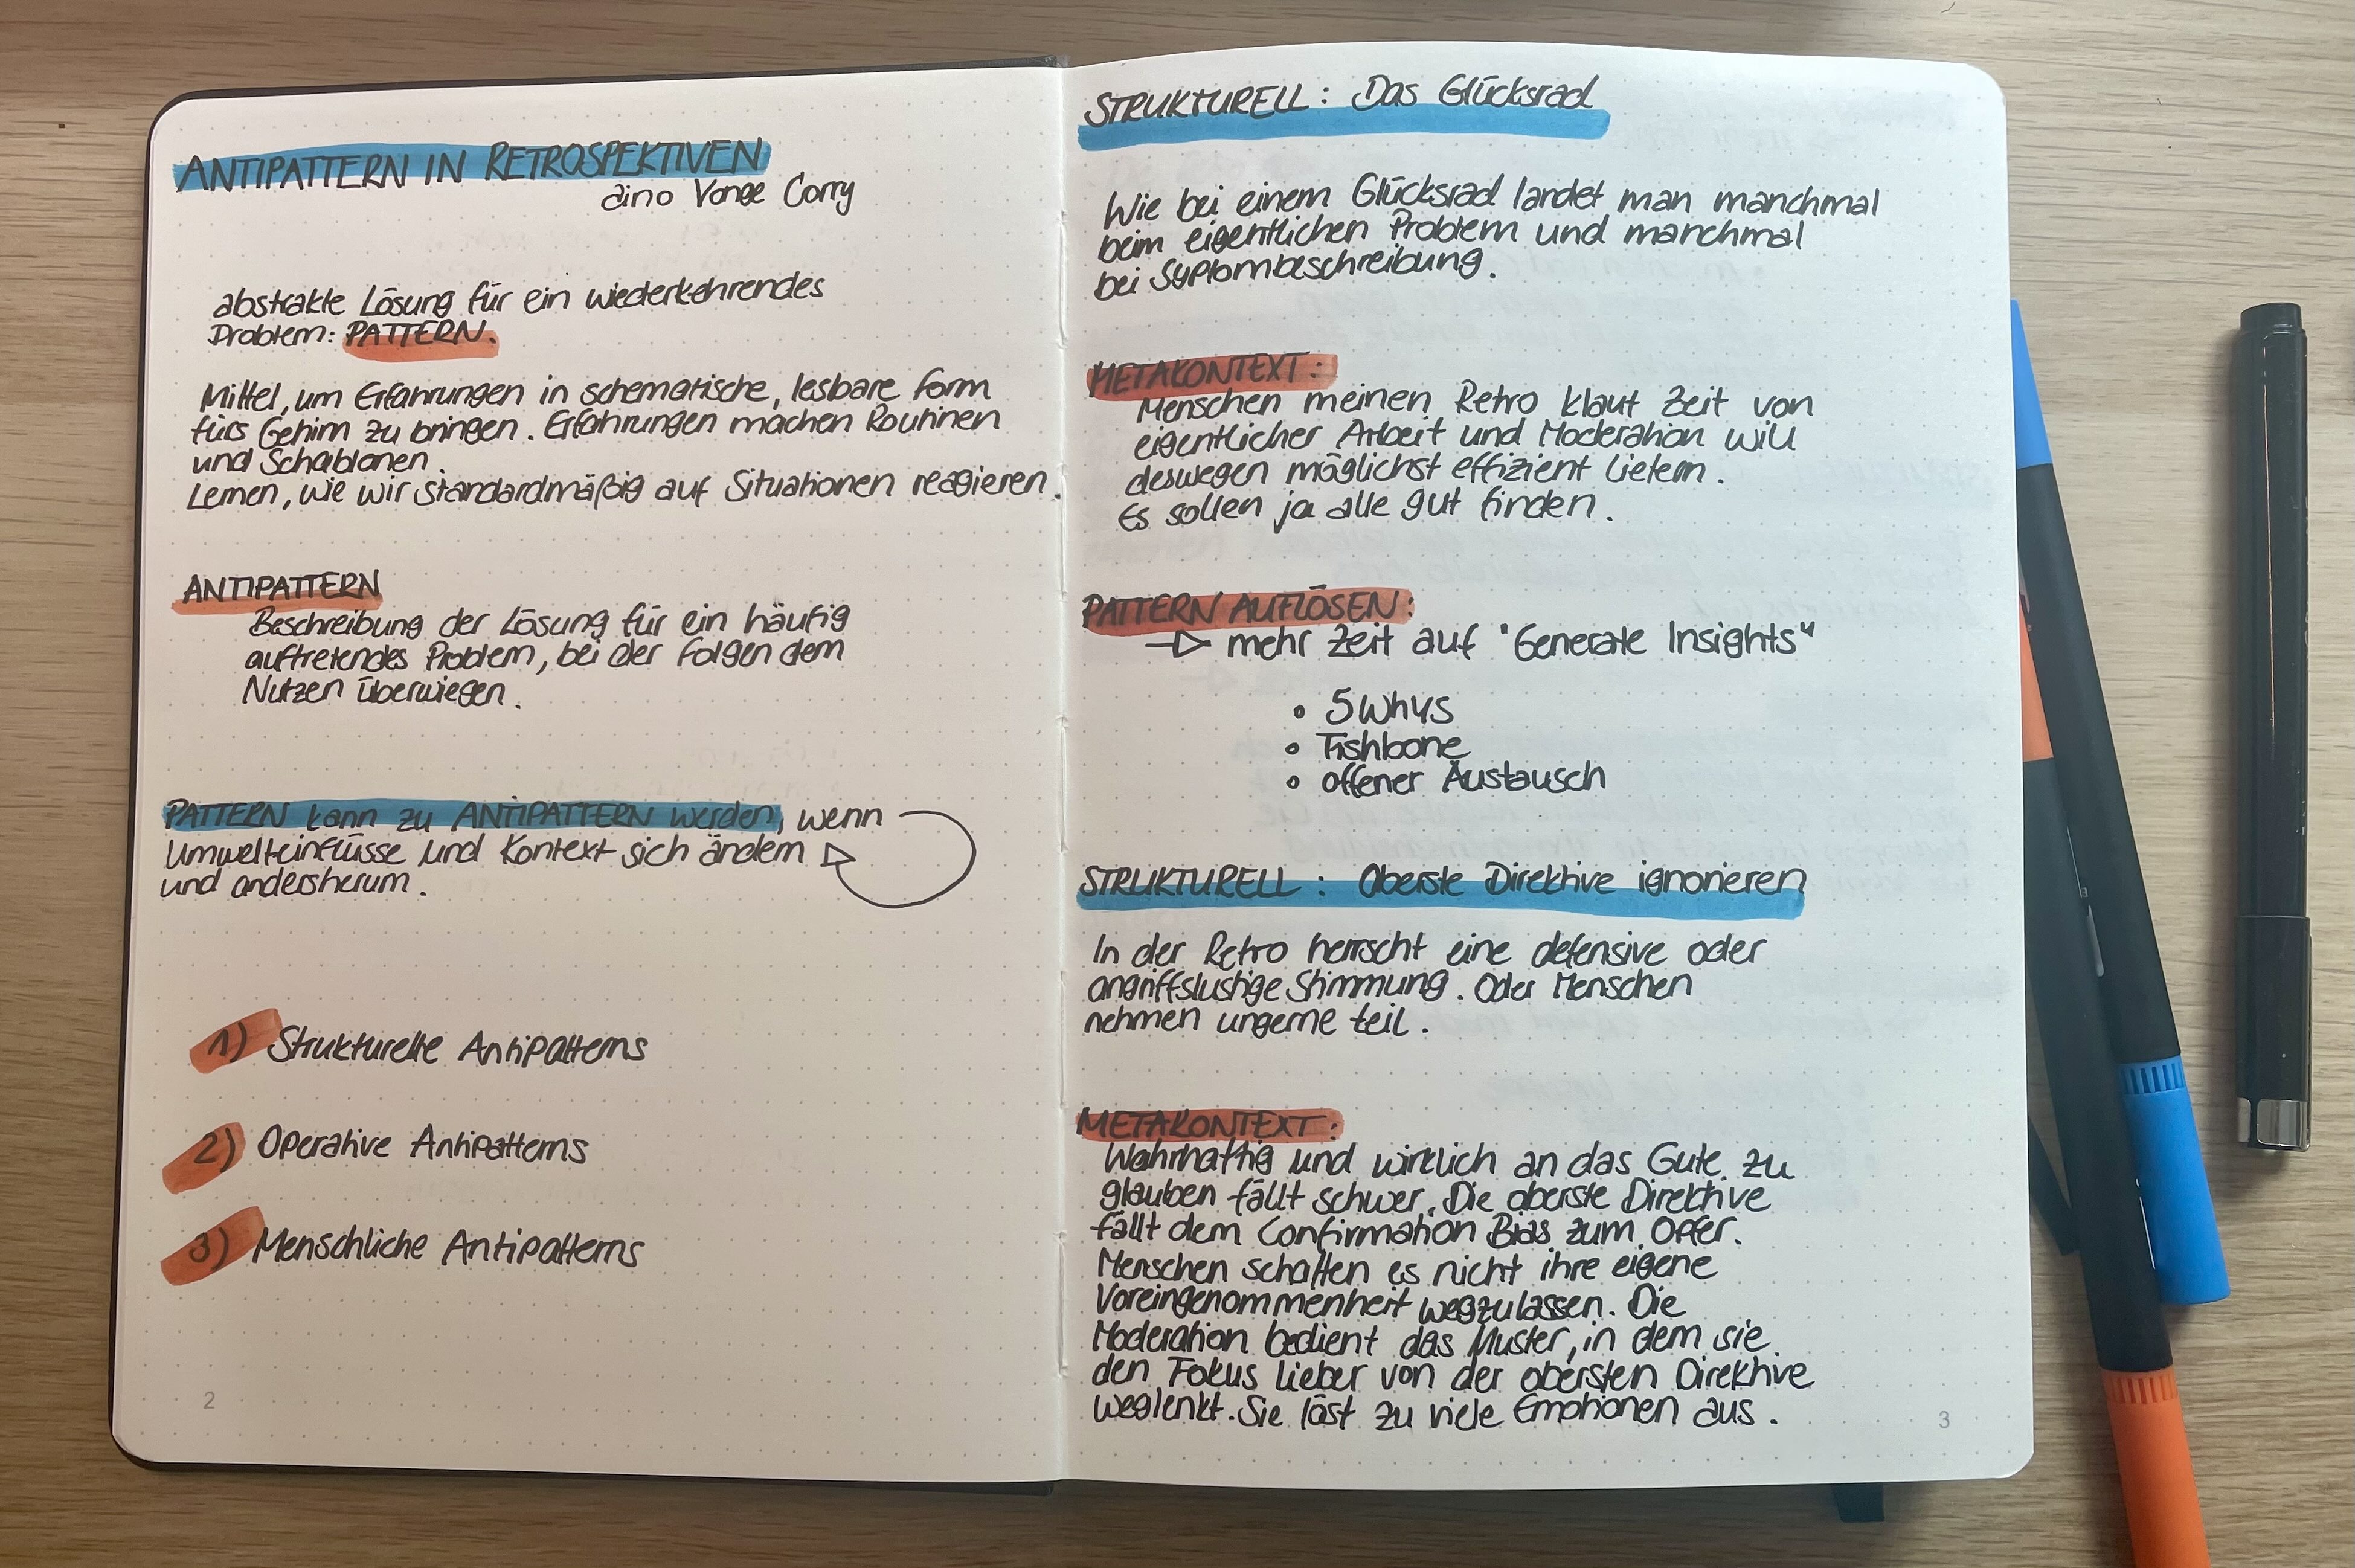 ANTIPATTERN IN RETROSPEKTIVEN
aino Vonge Corry
abstrakte Lösung für ein wiederkehrendes
Problem: PATTERN.
Mittel, um Erfahrungen in schematische, lesbare Form
fürs Gehirn zu bringen. Erfahrungen machen Routinen
und Schablonen.
Lernen, wie wir standardmäßig auf Situationen reagieren.
ANTIPATTERN
Beschreibung der Lösung für ein häufig
auftretendes Problem, bei der Folgen dem
Nutzen überwiegen.
PATTERN kann zu ANTIPATTERN werden, wenn
Umwelteinflüsse und Kontext sich ändern
und andersherum.
1) Strukturelle Antipatterns
2) Operative Antipatterns
3) Menschliche Antipatterns
2
STRUKTURELL: Das Glücksrad
Wie bei einem Glücksrad landet man manchmal
beim eigentlichen Problem und manchmal
bei Syptombeschreibung.
METAKONTEXT:
Menschen meinen Retro klaut Zeit von
eigentlicher Arbeit und Moderation will
deswegen möglichst effizient liefern.
Es sollen ja alle gut finden.
PATTERN AUFLÖSEN:
→ mehr Zeit auf "Generate Insights"
• 5 Whys
• Fishbone
• offener Austausch
STRUKTURELL: Oberste Direktive ignorieren
In der Retro herrscht eine defensive oder
angriffslustige Stimmung. Oder Menschen
nehmen ungerne teil.
METAKONTEXT:
Wahrhaftig und wirklich an das Gute zu
glauben fällt schwer. Die oberste Direktive
fällt dem Confirmation Bias zum Opfer.
Menschen schaffen es nicht ihre eigene
Voreingenommenheit wegzulassen. Die
Moderation bedient das Muster, in dem sie
den Fokus lieber von der obersten Direktive
weglenkt. Sie löst zu viele Emotionen aus.
3